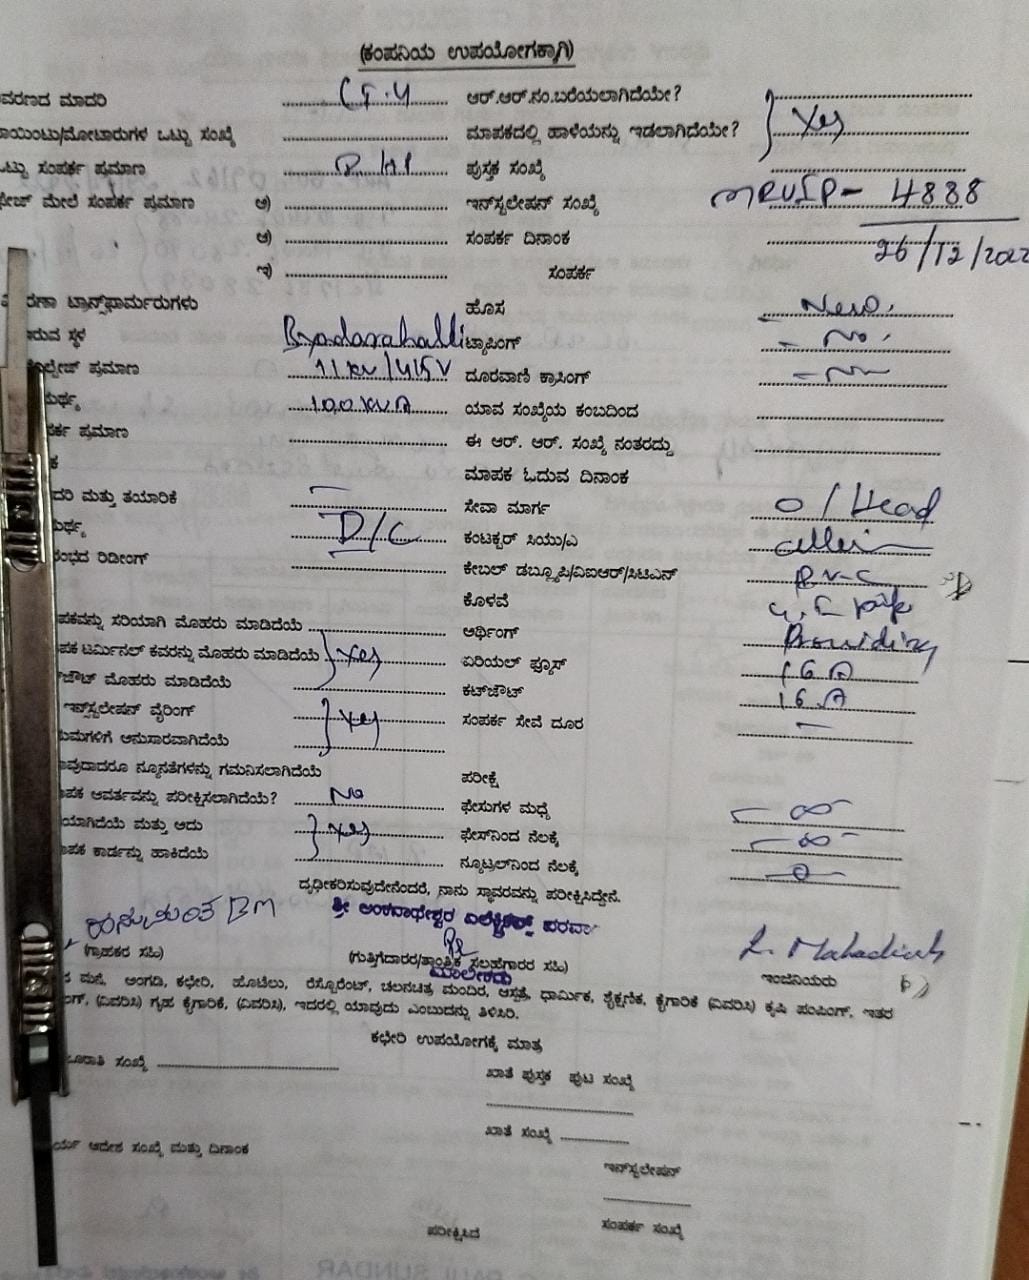 (ಕಂಪನಿಯ ಉಪಯೋಗಕ್ಕಾಗಿ)
ವರಣದ ಮಾದರಿ ಆರ್.ಆರ್.ನಂ.ಬರೆಯಲಾಗಿದೆಯೇ?
ಾಯಿಂಟು/ಮೋಟಾರುಗಳ ಒಟ್ಟು ಸಂಖ್ಯೆ ಮಾಪಕದಲ್ಲಿ ಹಾಳೆಯನ್ನು ಇಡಲಾಗಿದೆಯೇ? Yes
ಒಟ್ಟು ಸಂಪರ್ಕ ಪ್ರಮಾಣ ಪುಸ್ತಕ ಸಂಖ್ಯೆ
ಫೇಜ್ ಮೇಲೆ ಸಂಪರ್ಕ ಪ್ರಮಾಣ ಅ) ಇನ್‌ಸ್ಟಲೇಷನ್ ಸಂಖ್ಯೆ 4888
ಆ) ಸಂಪರ್ಕ ದಿನಾಂಕ 26/12/202
ಇ) ಸಂಪರ್ಕ
ರಣಾ ಟ್ರಾನ್ಸ್‌ಫಾರ್ಮರುಗಳು ಹೊಸ New
ಇರುವ ಸ್ಥಳ Byadarahalli ಟ್ಯಾಪಿಂಗ್ - No.
ವೋಲ್ಟೇಜ್ ಪ್ರಮಾಣ 11kv/415V ದೂರವಾಣಿ ಕ್ರಾಸಿಂಗ್
ಮರ್ಥ್ಯ 100 KVA ಯಾವ ಸಂಖ್ಯೆಯ ಕಂಬದಿಂದ
ಪರ್ಕ ಪ್ರಮಾಣ ಈ ಆರ್. ಆರ್. ಸಂಖ್ಯೆ ನಂತರದ್ದು
ಕ ಮಾಪಕ ಓದುವ ದಿನಾಂಕ
ದರಿ ಮತ್ತು ತಯಾರಿಕೆ — ಸೇವಾ ಮಾರ್ಗ O/Head
ಮರ್ಥ್ಯ D/C ಕಂಟಕ್ಟರ್ ಸಿಯು/ಎ
ರಂಭದ ರಿಡೀಂಗ್ ಕೇಬಲ್ ಡಬ್ಲ್ಯೂಪಿ/ವಿಐಆರ್/ಸಿಟಿಎಸ್ P.V.C
ಕೊಳವೆ G.I. pipe
ಪಕವನ್ನು ಸರಿಯಾಗಿ ಮೊಹರು ಮಾಡಿದೆಯೆ ಅರ್ಥಿಂಗ್ Providing
ಪಕ ಟರ್ಮಿನಲ್ ಕವರನ್ನು ಮೊಹರು ಮಾಡಿದೆಯೆ Yes ಏರಿಯಲ್ ಫ್ಯೂಸ್ 16 A
ಟ್‌ಔಟ್ ಮೊಹರು ಮಾಡಿದೆಯೆ ಕಟ್‌ಔಟ್ 16.A
ಇನ್‌ಸ್ಟಲೇಷನ್ ವೈರಿಂಗ್ Yes ಸಂಪರ್ಕ ಸೇವೆ ದೂರ —
ಯಮಗಳಿಗೆ ಅನುಸಾರವಾಗಿದೆಯೆ
ಾವುದಾದರೂ ನ್ಯೂನತೆಗಳನ್ನು ಗಮನಿಸಲಾಗಿದೆಯೆ ಪರೀಕ್ಷೆ
ಾಪಕ ಆವರ್ತವನ್ನು ಪರೀಕ್ಷಿಸಲಾಗಿದೆಯೆ? No ಫೇಸುಗಳ ಮಧ್ಯೆ — ∞ —
ಯಾಗಿದೆಯೆ ಮತ್ತು ಅದು Yes ಫೇಸ್‌ನಿಂದ ನೆಲಕ್ಕೆ — ∞ —
ಾಪಕ ಕಾರ್ಡನ್ನು ಹಾಕಿದೆಯೆ ನ್ಯೂಟ್ರಲ್‌ನಿಂದ ನೆಲಕ್ಕೆ — 0 —
ದೃಢೀಕರಿಸುವುದೇನೆಂದರೆ, ನಾನು ಸ್ಥಾವರವನ್ನು ಪರೀಕ್ಷಿಸಿದ್ದೇನೆ.
ಹನುಮಂತ BM ಶ್ರೀ ಅಂಕನಾಥೇಶ್ವರ ಎಲೆಕ್ಟ್ರಿಕಲ್ಸ್ ಪರವಾ
(ಗ್ರಾಹಕರ ಸಹಿ) (ಗುತ್ತಿಗೆದಾರರ/ತಾಂತ್ರಿಕ ಸಲಹೆಗಾರರ ಸಹಿ) ಇಂಜಿನಿಯರು
ಮಾಲೀಕರು
ಮನೆ, ಅಂಗಡಿ, ಕಛೇರಿ, ಹೊಟೆಲು, ರೆಸ್ಟೋರೆಂಟ್, ಚಲನಚಿತ್ರ ಮಂದಿರ, ಆಸ್ಪತ್ರೆ, ಧಾರ್ಮಿಕ, ಶೈಕ್ಷಣಿಕ, ಕೈಗಾರಿಕೆ (ವಿವರಿಸಿ) ಕೃಷಿ ಪಂಪಿಂಗ್, ಇತರ
ಂಗ್, (ವಿವರಿಸಿ) ಗೃಹ ಕೈಗಾರಿಕೆ, (ವಿವರಿಸಿ), ಇದರಲ್ಲಿ ಯಾವುದು ಎಂಬುದನ್ನು ತಿಳಿಸಿರಿ.
ಕಛೇರಿ ಉಪಯೋಗಕ್ಕೆ ಮಾತ್ರ
ಸಂಖ್ಯೆ ಖಾತೆ ಪುಸ್ತಕ ಪುಟ ಸಂಖ್ಯೆ
ಖಾತೆ ಸಂಖ್ಯೆ
ರ್ಯ ಆದೇಶ ಸಂಖ್ಯೆ ಮತ್ತು ದಿನಾಂಕ
ಇನ್‌ಸ್ಟಲೇಷನ್
ಪರೀಕ್ಷಿಸಿದೆ ಸಂಪರ್ಕ ಸಂಖ್ಯೆ